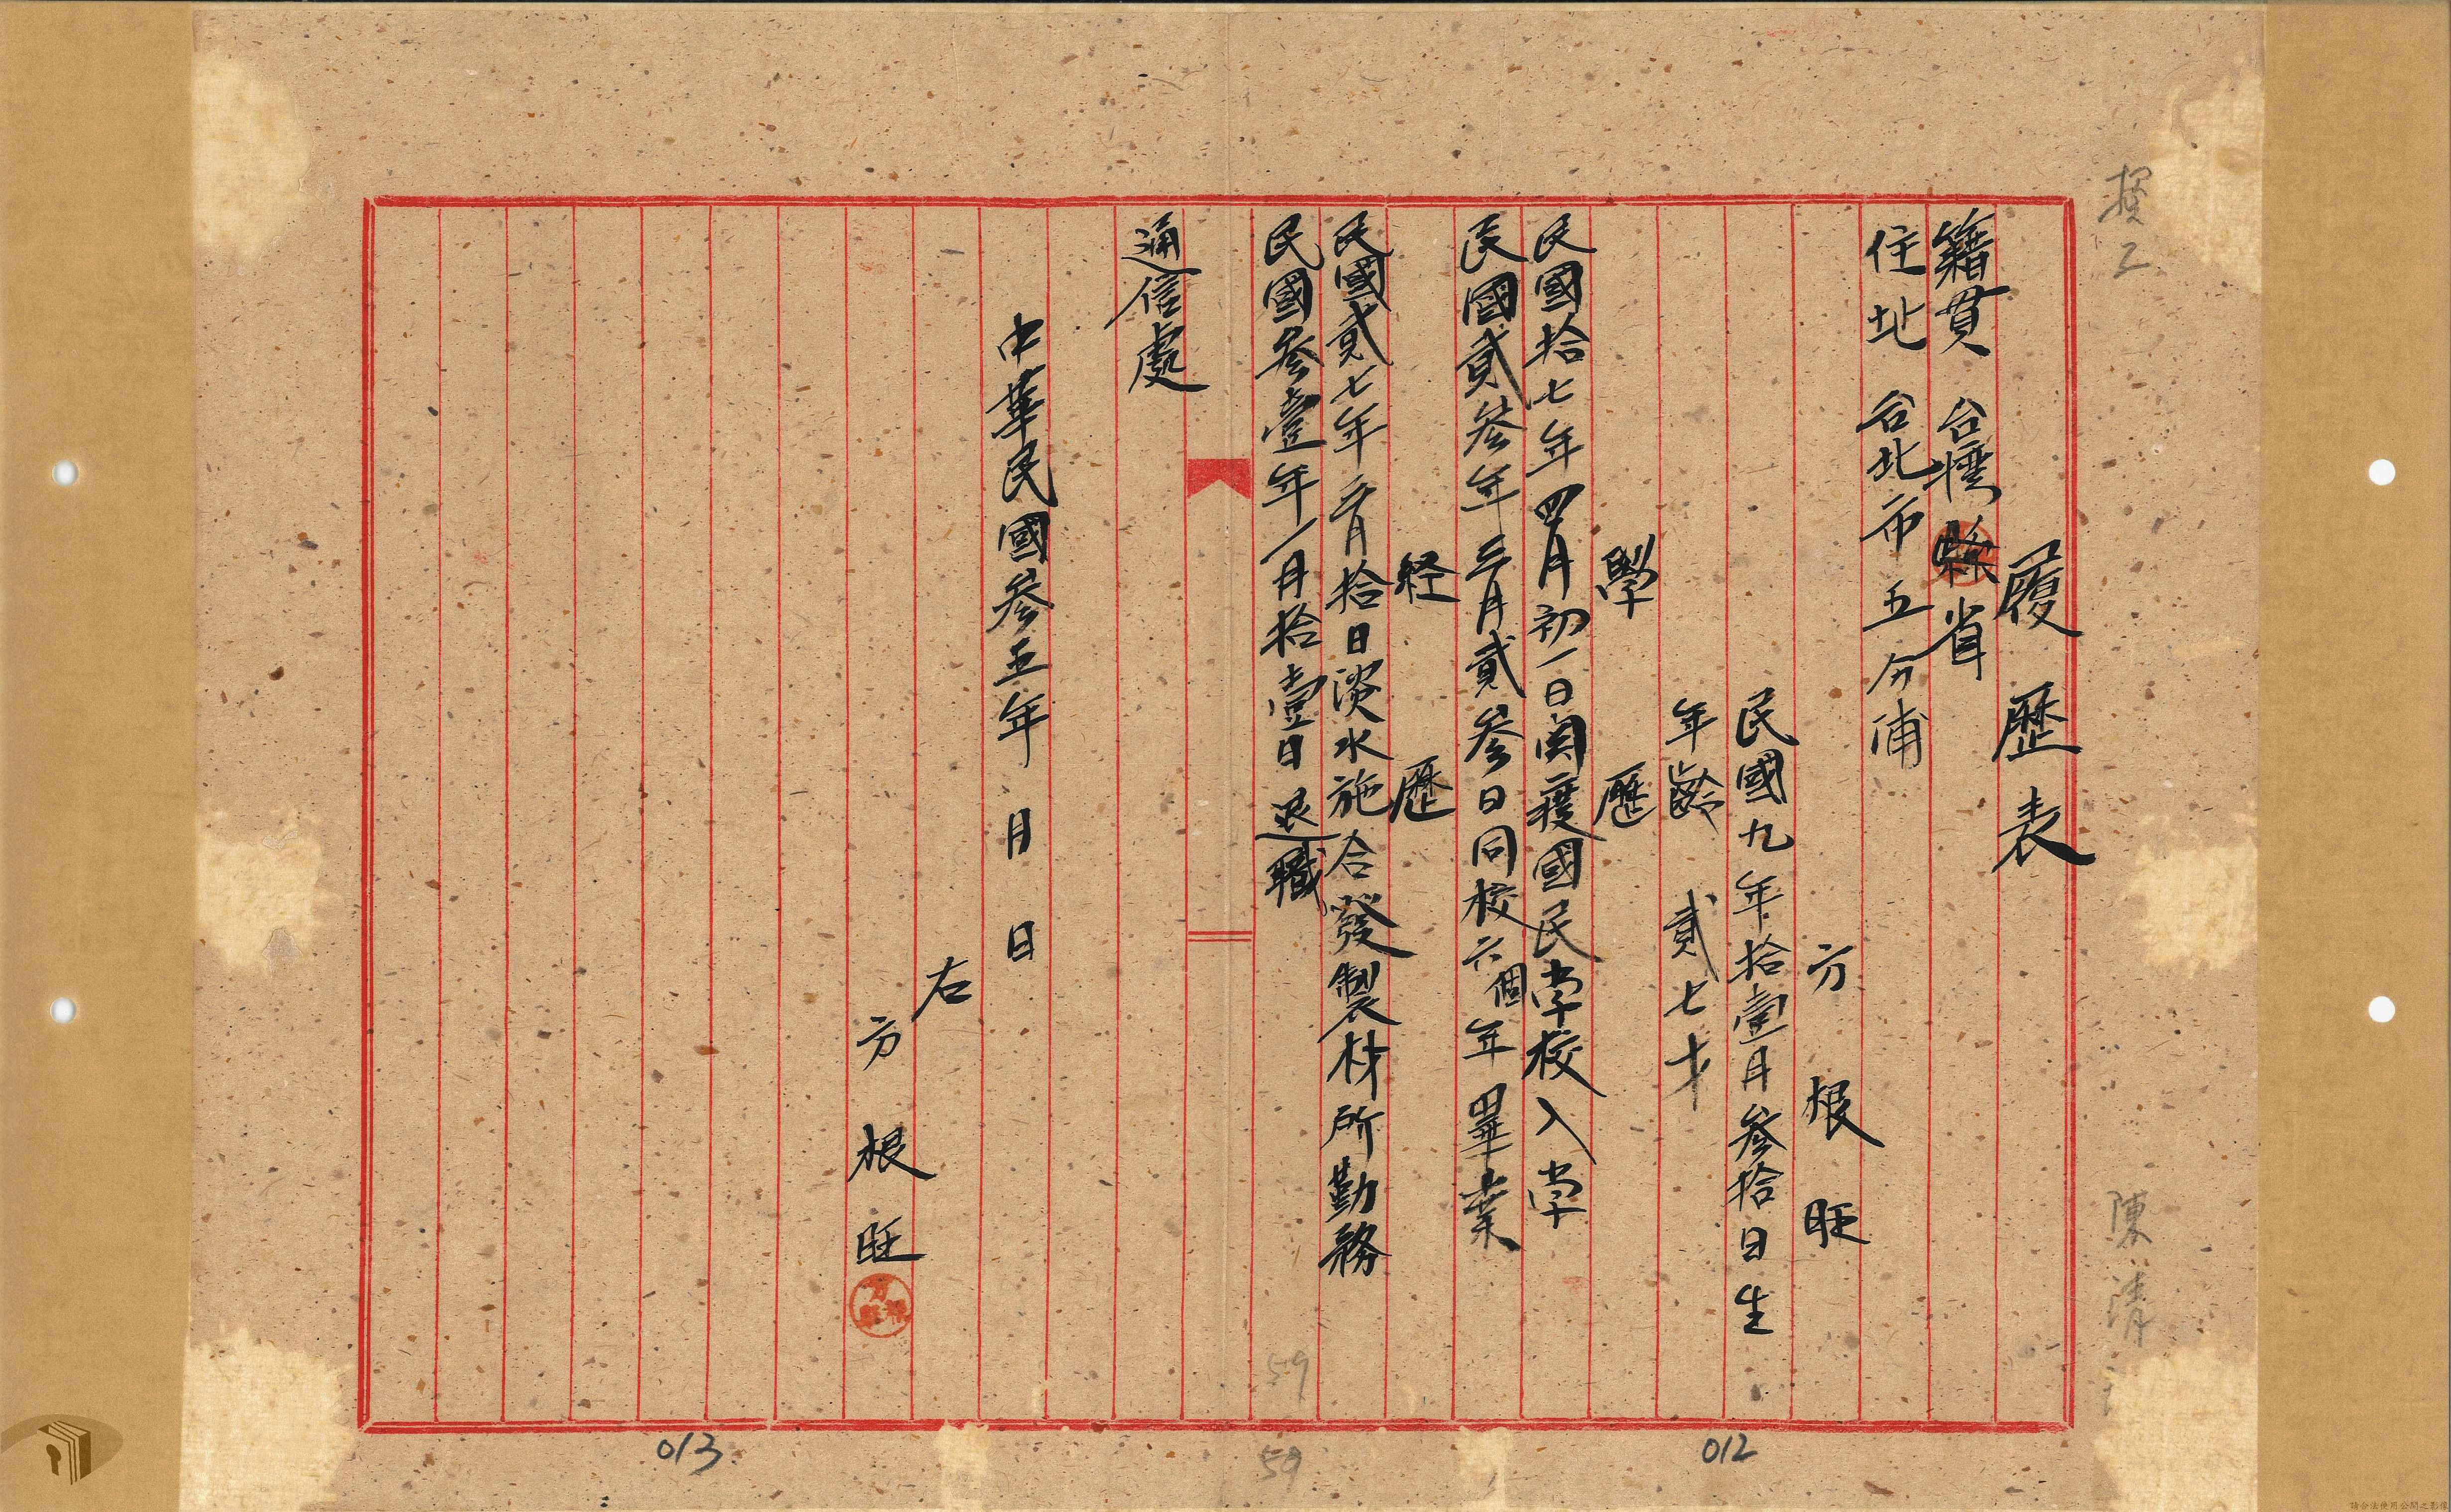 履歷表
籍貫 台灣省
住址 台北市五分浦
方根旺
民國九年拾壹月參拾日生
年齡 貳七才
學歷
民國拾七年四月初一日関渡國民学校入学
民國貳參年三月貳參日同校六個年畢業
経歷
民國貳七年二月拾日淡水施合發製材所勤務
民國參壹年一月拾壹日退職
通信處
中華民國參五年 月 日
右
方根旺
陳清
59
59
012
013
請合法使用公開之影像